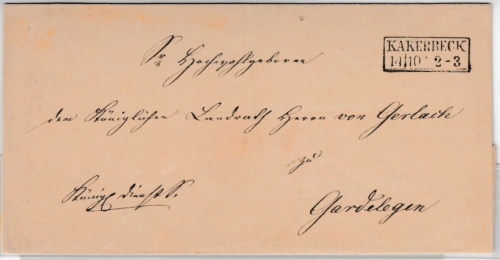 KAKERBECK
14/10 * 2-3
Sr. Hochwohlgeboren
dem Königlichen Landrath Herrn von Gerlach
zu
Königl. dienst S.
Gardelegen